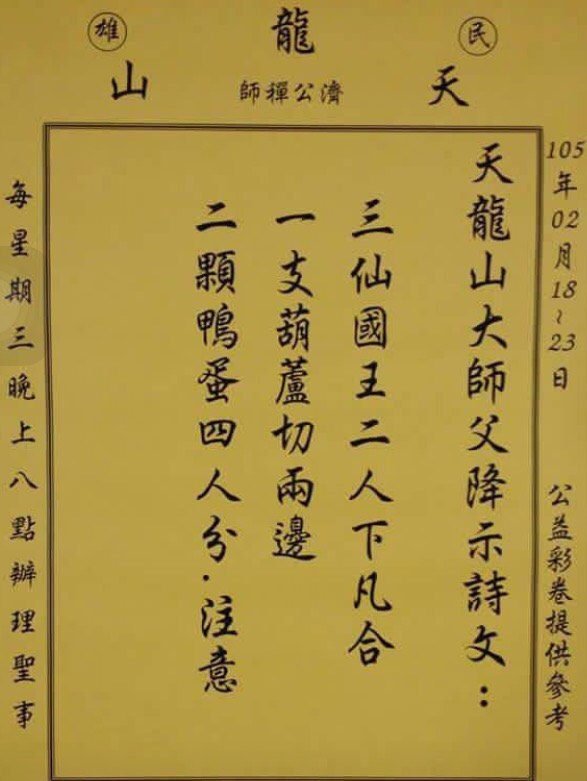 民 雄
天龍山
濟公禪師
105年02月18~23日 公益彩卷提供參考
天龍山大師父降示詩文：
三仙國王二人下凡合
一支葫蘆切兩邊
二顆鴨蛋四人分．注意
每星期三晚上八點辦理聖事